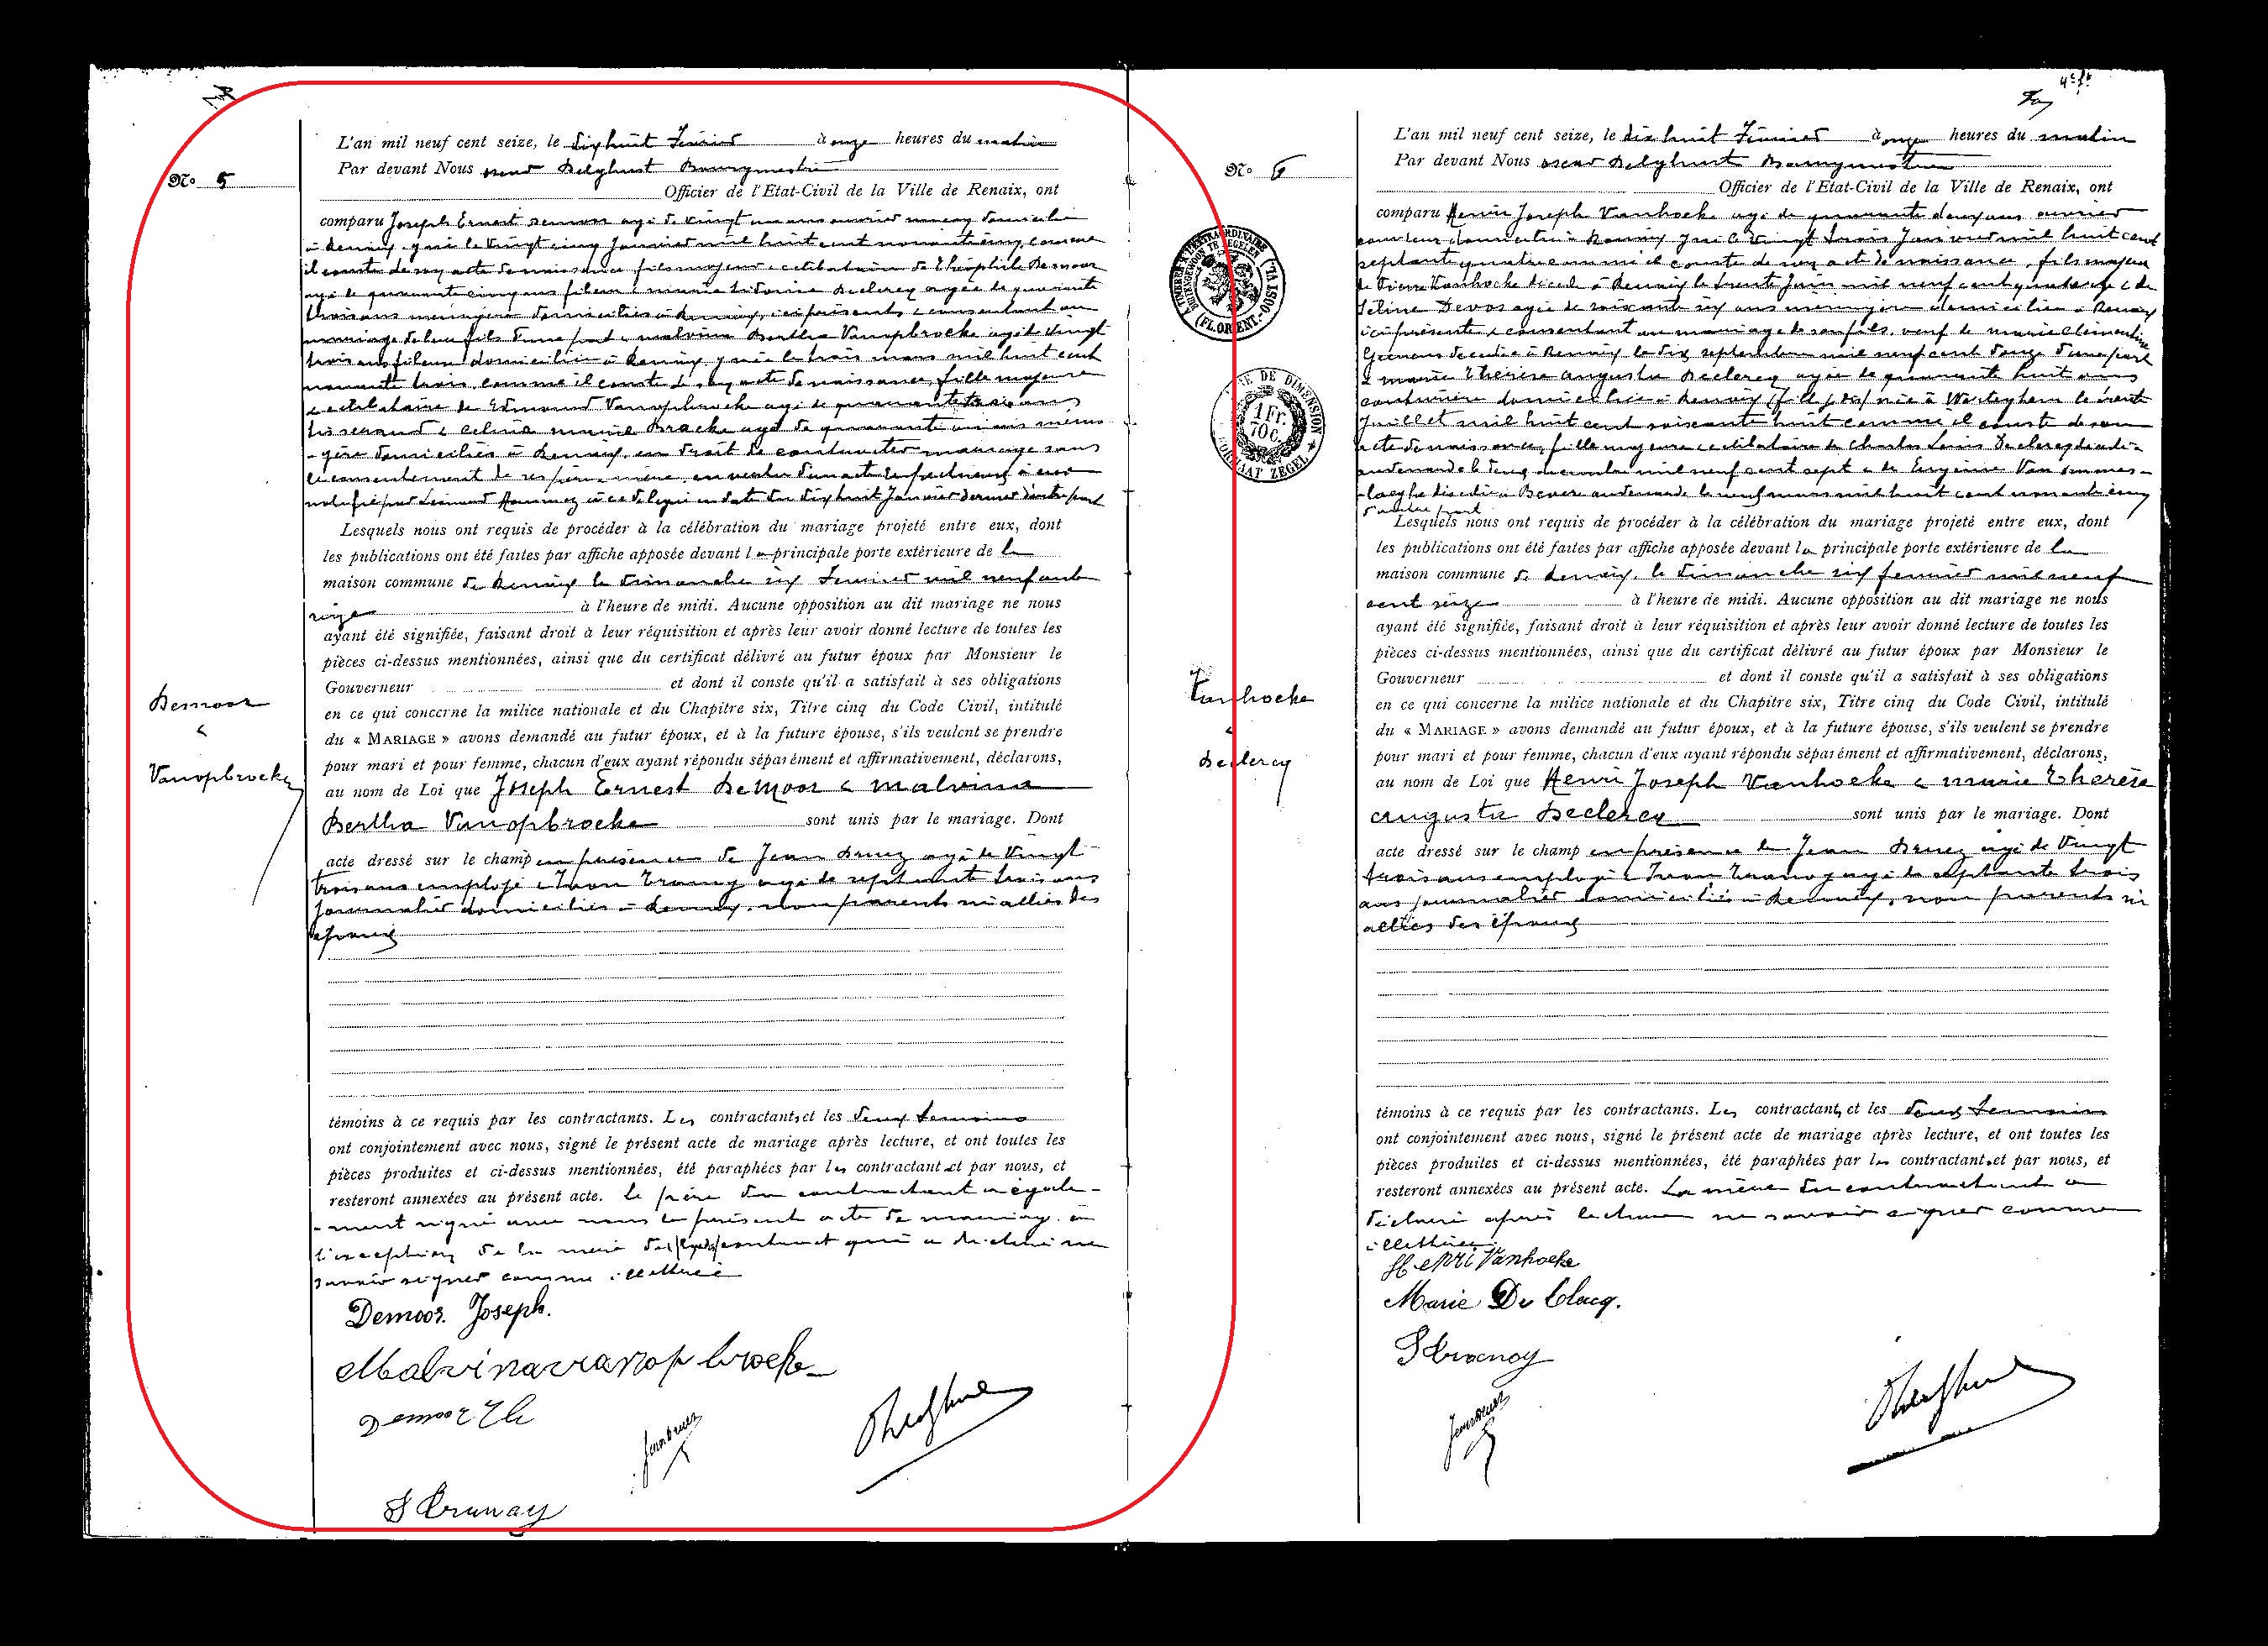 No 5
L'an mil neuf cent seize, le dix huit Février à onze heures du matin
Par devant Nous Oscar Delghust Bourgmestre
Officier de l'Etat-Civil de la Ville de Renaix, ont
comparu Joseph Ernest Demoor agé de vingt un ans ouvrier domicilié
à Renaix, né le vingt cinq Janvier mil huit cent nonante cinq comme
il conste de son acte de naissance, fils majeur célibataire de Théophile Demoor
agé de quarante cinq ans fileur & Marie Sidonie Declercq agée de quarante
trois ans ménagère domiciliés à Renaix, ici présents & consentant au
mariage de leur fils d'une part & Malvina Bertha Vanopbroeke agée de vingt
trois ans fileuse domiciliée à Renaix, née le trois mars mil huit cent
nonante trois, comme il conste de son acte de naissance, fille majeure
& célibataire de Edmond Vanopbroeke agé de quarante trois ans
tisserand & Celina Marie Bracke agée de quarante un ans ména-
-gère domiciliés à Renaix, en droit de contracter mariage sans
le consentement de ses père & mère, en vertu d'un acte respectueux à eux
notifié par Léonard à ce délégué en date du dix huit Janvier dernier d'autre part
Lesquels nous ont requis de procéder à la célébration du mariage projeté entre eux, dont
les publications ont été faites par affiche apposée devant la principale porte extérieure de la
maison commune de Renaix le dimanche six Février mil neuf cent
seize à l'heure de midi. Aucune opposition au dit mariage ne nous
ayant été signifiée, faisant droit à leur réquisition et après leur avoir donné lecture de toutes les
pièces ci-dessus mentionnées, ainsi que du certificat délivré au futur époux par Monsieur le
Gouverneur et dont il conste qu'il a satisfait à ses obligations
en ce qui concerne la milice nationale et du Chapitre six, Titre cinq du Code Civil, intitulé
du « MARIAGE » avons demandé au futur époux, et à la future épouse, s'ils veulent se prendre
pour mari et pour femme, chacun d'eux ayant répondu séparément et affirmativement, déclarons,
au nom de Loi que Joseph Ernest Demoor & Malvina
Bertha Vanopbroeke sont unis par le mariage. Dont
acte dressé sur le champ en présence de Jean Druez agé de vingt
trois ans employé & Ivon Tranoy agé de septante trois ans
journalier domiciliés à Renaix, non parents ni alliés des
époux
témoins à ce requis par les contractants. Les contractants et les deux témoins
ont conjointement avec nous, signé le présent acte de mariage après lecture, et ont toutes les
pièces produites et ci-dessus mentionnées, été paraphées par les contractant et par nous, et
resteront annexées au présent acte. Le père du contractant a égale-
-ment signé avec nous le présent acte de mariage à
l'exception de la mère du contractant qui a déclaré ne
savoir signer comme illettrée
Demoor
&
Vanopbroeke
Demoor. Joseph.
Malvina vanopbroeke
Demoor Th
Jean Druez
Tranoy
No 6
L'an mil neuf cent seize, le dix huit Février à onze heures du matin
Par devant Nous Oscar Delghust Bourgmestre
Officier de l'Etat-Civil de la Ville de Renaix, ont
comparu Henri Joseph Vanhoeke agé de quarante deux ans ouvrier
domicilié à Renaix né le vingt trois Janvier mil huit cent
septante quatre comme il conste de son acte de naissance, fils majeur
de Pierre Vanhoeke décédé à Renaix le trente Juin mil neuf cent quatorze & de
Céline Devos agée de soixante six ans ménagère domiciliée à Renaix
ici présente & consentant au mariage de son fils, veuf de Marie Clémentine
décédée à Renaix le dix septembre mil neuf cent douze d'une part
& Marie Thérèse Augusta Declercq agée de quarante huit ans
couturière domiciliée à Renaix née à Wortegem le trente
Juillet mil huit cent soixante huit comme il conste de son
acte de naissance, fille majeure & célibataire de Charles Louis Declercq décédé à
Audenarde le deux décembre mil neuf cent sept & de Eugénie Van Ommes-
-laeghe décédée à Bevere Audenarde le neuf mars mil huit cent nonante cinq
d'autre part
Lesquels nous ont requis de procéder à la célébration du mariage projeté entre eux, dont
les publications ont été faites par affiche apposée devant la principale porte extérieure de la
maison commune de Renaix, le dimanche six février mil neuf
cent seize à l'heure de midi. Aucune opposition au dit mariage ne nous
ayant été signifiée, faisant droit à leur réquisition et après leur avoir donné lecture de toutes les
pièces ci-dessus mentionnées, ainsi que du certificat délivré au futur époux par Monsieur le
Gouverneur et dont il conste qu'il a satisfait à ses obligations
en ce qui concerne la milice nationale et du Chapitre six, Titre cinq du Code Civil, intitulé
du « MARIAGE » avons demandé au futur époux, et à la future épouse, s'ils veulent se prendre
pour mari et pour femme, chacun d'eux ayant répondu séparément et affirmativement, déclarons,
au nom de Loi que Henri Joseph Vanhoeke & Marie Thérèse
Augusta Declercq sont unis par le mariage. Dont
acte dressé sur le champ en présence de Jean Druez agé de vingt
trois ans employé & Ivon Tranoy agé de septante trois
ans journalier domiciliés à Renaix, non parents ni
alliés des époux
témoins à ce requis par les contractants. Les contractants et les deux témoins
ont conjointement avec nous, signé le présent acte de mariage après lecture, et ont toutes les
pièces produites et ci-dessus mentionnées, été paraphées par les contractants et par nous, et
resteront annexées au présent acte. La mère du contractant a
déclaré après lecture ne savoir signer comme
illettrée
Vanhoeke
&
Declercq
Henri Vanhoeke
Marie De Clacq.
Tranoy
Jean Druez
1 FR. 70 C.